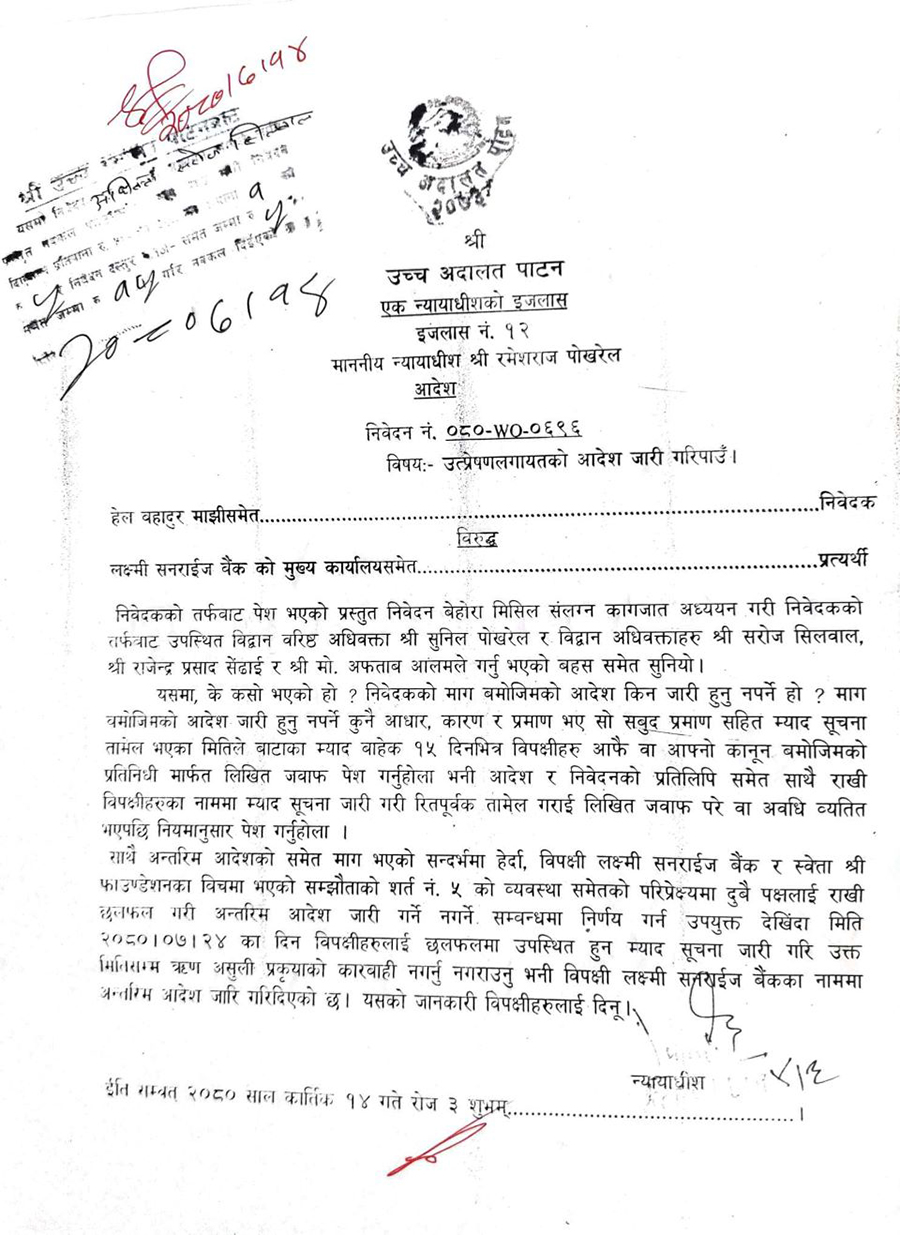 २०८०।७।१४
श्री उच्च
यसमा
सरोज सिलवाल
निवेदन दस्तुर
समेत जम्मा रु
जम्मा रु १५ गरि नक्कल दिईएको
२०८०।७।१४
उच्च अदालत पाटन
२०७३
श्री
उच्च अदालत पाटन
एक न्यायाधीशको इजलास
इजलास नं. १२
माननीय न्यायाधीश श्री रमेशराज पोखरेल
आदेश
निवेदन नं. ०८०-WO-०६९६
विषय:- उत्प्रेषणलगायतको आदेश जारी गरिपाउँ।
हेल वहादुर माझीसमेत...................................................................................निवेदक
विरुद्ध
लक्ष्मी सनराईज बैंक को मुख्य कार्यालयसमेत............................................................प्रत्यर्थी
निवेदकको तर्फवाट पेश भएको प्रस्तुत निवेदन वेहोरा मिसिल संलग्न कागजात अध्ययन गरी निवेदकको
तर्फवाट उपस्थित विद्वान वरिष्ठ अधिवक्ता श्री सुनिल पोखरेल र विद्वान अधिवक्ताहरु श्री सरोज सिलवाल,
श्री राजेन्द्र प्रसाद सेंढाई र श्री मो. अफताब आलमले गर्नु भएको बहस समेत सुनियो।
यसमा, के कसो भएको हो ? निवेदकको माग बमोजिमको आदेश किन जारी हुनु नपर्ने हो ? माग
बमोजिमको आदेश जारी हुनु नपर्ने कुनै आधार, कारण र प्रमाण भए सो सबुद प्रमाण सहित म्याद सूचना
तामेल भएका मितिले बाटाका म्याद बाहेक १५ दिनभित्र विपक्षीहरु आफै वा आफ्नो कानून बमोजिमको
प्रतिनिधी मार्फत लिखित जवाफ पेश गर्नुहोला भनी आदेश र निवेदनको प्रतिलिपि समेत साथै राखी
विपक्षीहरुका नाममा म्याद सूचना जारी गरी रितपूर्वक तामेल गराई लिखित जवाफ परे वा अवधि व्यतित
भएपछि नियमानुसार पेश गर्नुहोला ।
साथै अन्तरिम आदेशको समेत माग भएको सन्दर्भमा हेर्दा, विपक्षी लक्ष्मी सनराईज बैंक र स्वेता श्री
फाउण्डेशनका विचमा भएको सम्झौताको शर्त नं. ५ को व्यवस्था समेतको परिप्रेक्ष्यमा दुबै पक्षलाई राखी
छलफल गरी अन्तरिम आदेश जारी गर्ने नगर्ने सम्वन्धमा निर्णय गर्न उपयुक्त देखिंदा मिति
२०८०।०७।२४ का दिन विपक्षीहरुलाई छलफलमा उपस्थित हुन म्याद सूचना जारी गरि उक्त
मितिसम्म ऋण असुली प्रकृयाको कारवाही नगर्नु नगराउनु भनी विपक्षी लक्ष्मी सनराईज बैंकका नाममा
अन्तरिम आदेश जारि गरिदिएको छ। यसको जानकारी विपक्षीहरुलाई दिनू।
न्यायाधीश
ईति सम्वत् २०८० साल कार्तिक १४ गते रोज ३ शुभम्.................................................।